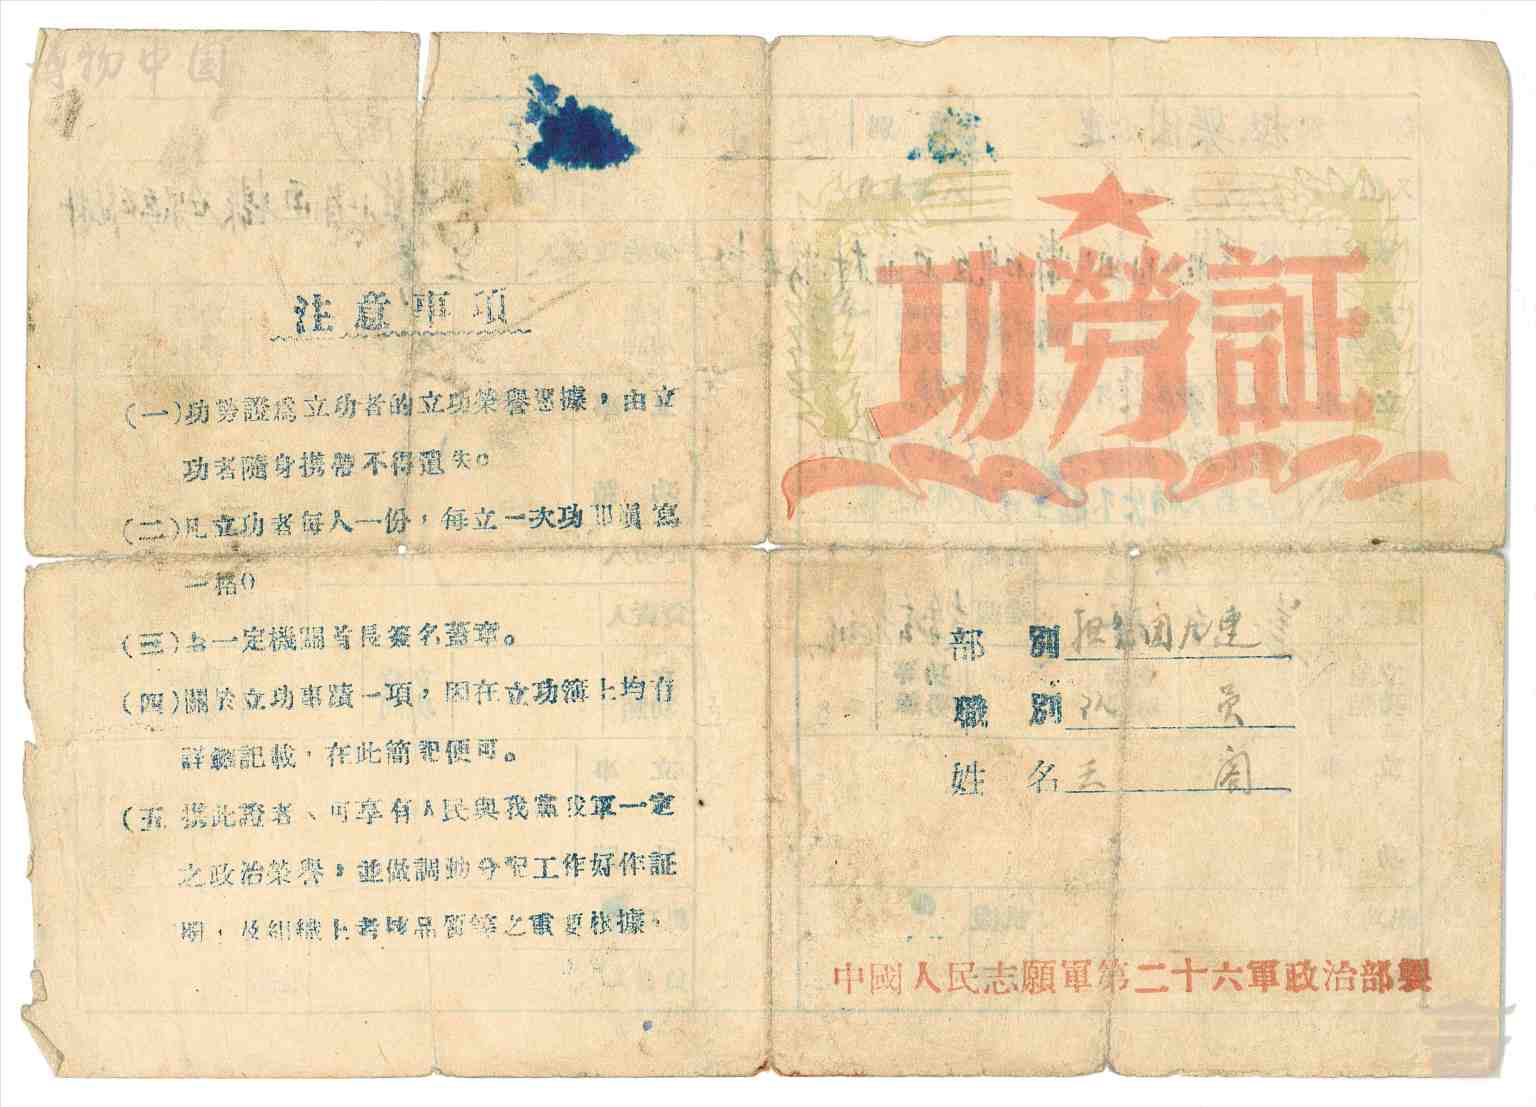 博物中国
注意事項
(一)功勞證爲立功者的立功榮譽憑據，由立
功者隨身携帶不得遺失。
(二)凡立功者每人一份，每立一次功即填寫
一格。
(三)一定機關首長簽名蓋章。
(四)關於立功事蹟一項，因在立功簿上均有
詳細記載，在此簡記便可。
(五 携此證者、可享有人民與我黨我軍一定
之政治榮譽，並做調動分配工作好作証
明，及組織上考核品質等之重要根據。
功勞証
部 別 担 団 連
職 別 队 员
姓 名 王 阁
中國人民志願軍第二十六軍政治部製